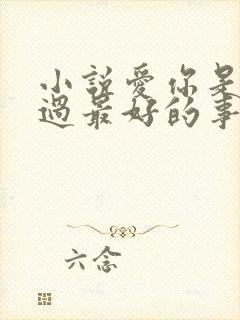 小說愛你是
過最好的事
六念